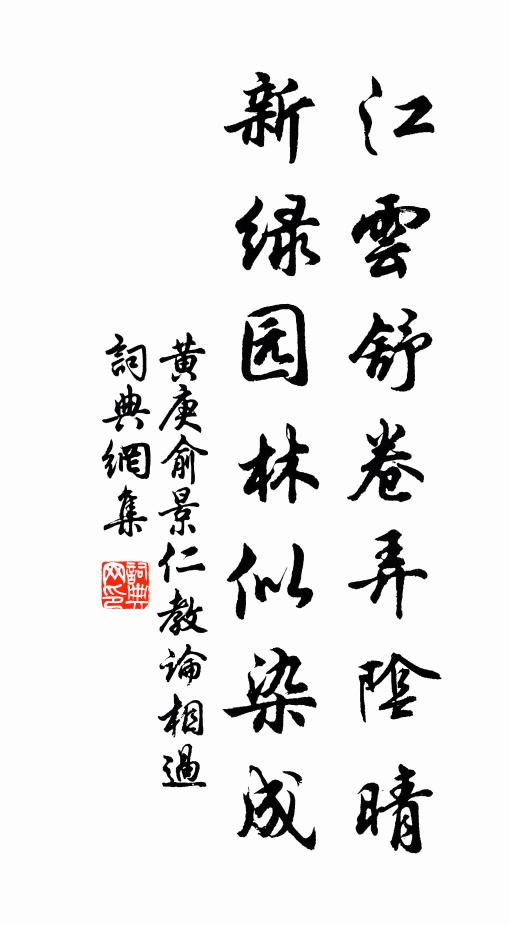 江雲舒卷弄陰晴
新绿园林似染成
黄庚俞景仁教論相過
詞典網集
詞典网印